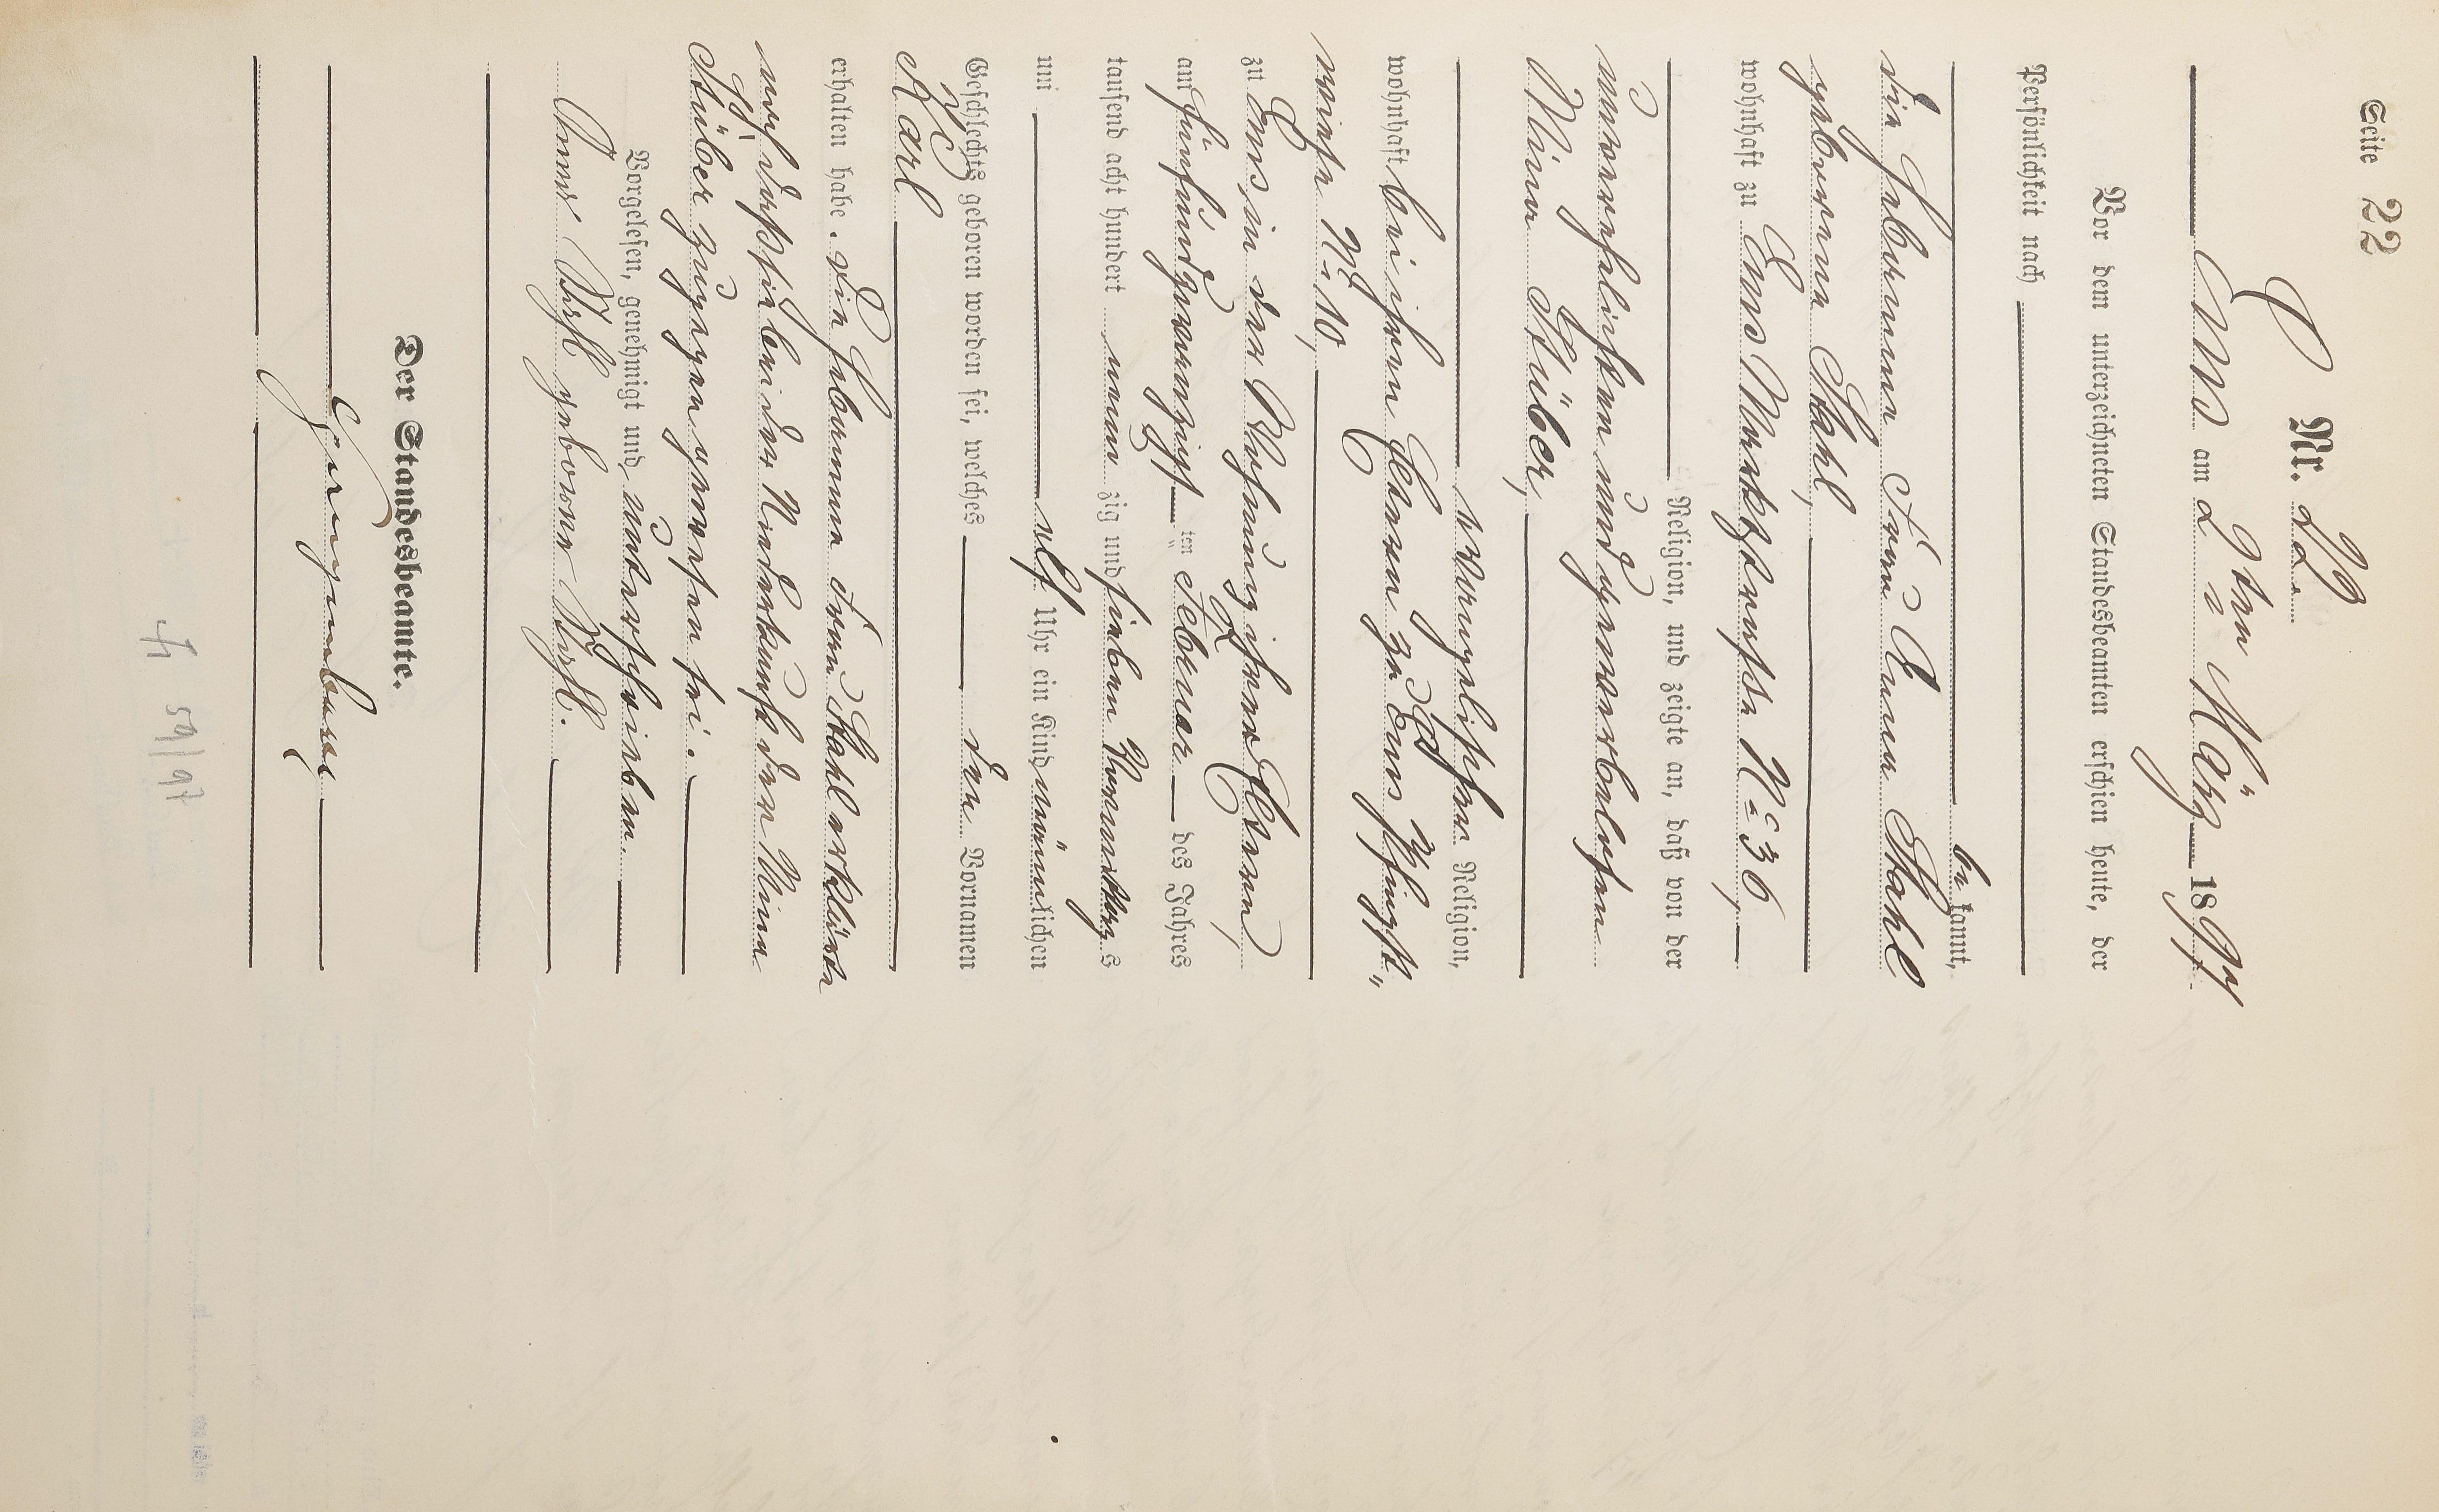 Seite 22
C
Nr. 22.
Ems am 2ten März 1897
Vor dem unterzeichneten Standesbeamten erschien heute, der
Persönlichkeit nach
be kannt,
die Hebamme Frau Anna Stahl
geborene Stahl,
wohnhaft zu Ems Marktstraße No 36,
Religion, und zeigte an, daß von der
unverehelichten und gewerbelosen
Mina Stüber,
evangelischer Religion,
wohnhaft bei ihren Eltern zu Ems Pfingst-
wiese No 10,
zu Ems in der Wohnung ihrer Eltern,
am fünfundzwanzigsten Februar des Jahres
tausend acht hundert neunzig und sieben Vormittags
um elf Uhr ein Kind männlichen
Geschlechts geboren worden sei, welches den Vornamen
Karl
erhalten habe. Die Hebamme Frau Stahl erklärte
noch daß sie bei der Niederkunft der Mina
Stüber zugegen gewesen sei.
Vorgelesen, genehmigt und unterschrieben.
Anna Stahl geborne Stahl.
Der Standesbeamte.
4 59/97